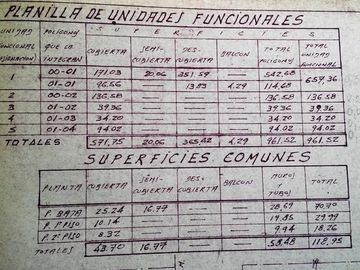 PLANILLA DE UNIDADES FUNCIONALES
UNIDAD POLIGONOS S U P E R F I C I E S
FUNCIONAL QUE LA CUBIERTA SEMI- DES- BALCON TOTAL TOTAL
INTEGRAN CUBIERTA CUBIERTA POLIGONO UNIDAD FUNCIONAL
1 00-01 171.03 20,06 351.59 — 542,68
01-01 96,56 — 13.83 4,29 114,68 657.36
2 00-02 136,58 — — — 136,58 136,58
3 01-02 39,36 — — — 39,36 39,36
4 01-03 34,20 — — — 34,20 34,20
5 01-04 94,02 — — — 94,02 94,02
TOTALES 571,75 20,06 365,42 4,29 961,52 961,52
SUPERFICIES COMUNES
PLANTA CUBIERTA SEMI- DES- BALCON MUROS TOTAL
CUBIERTA CUBIERTA Y TUBOS
P. BAJA 25.24 16.77 — — 28.69 70.70
P. 1º PISO 10.14 — — — 19.85 29.99
P. 2º PISO 8.32 — — — 9.94 18.26
TOTALES 43.70 16.77 — — 58.48 118.95